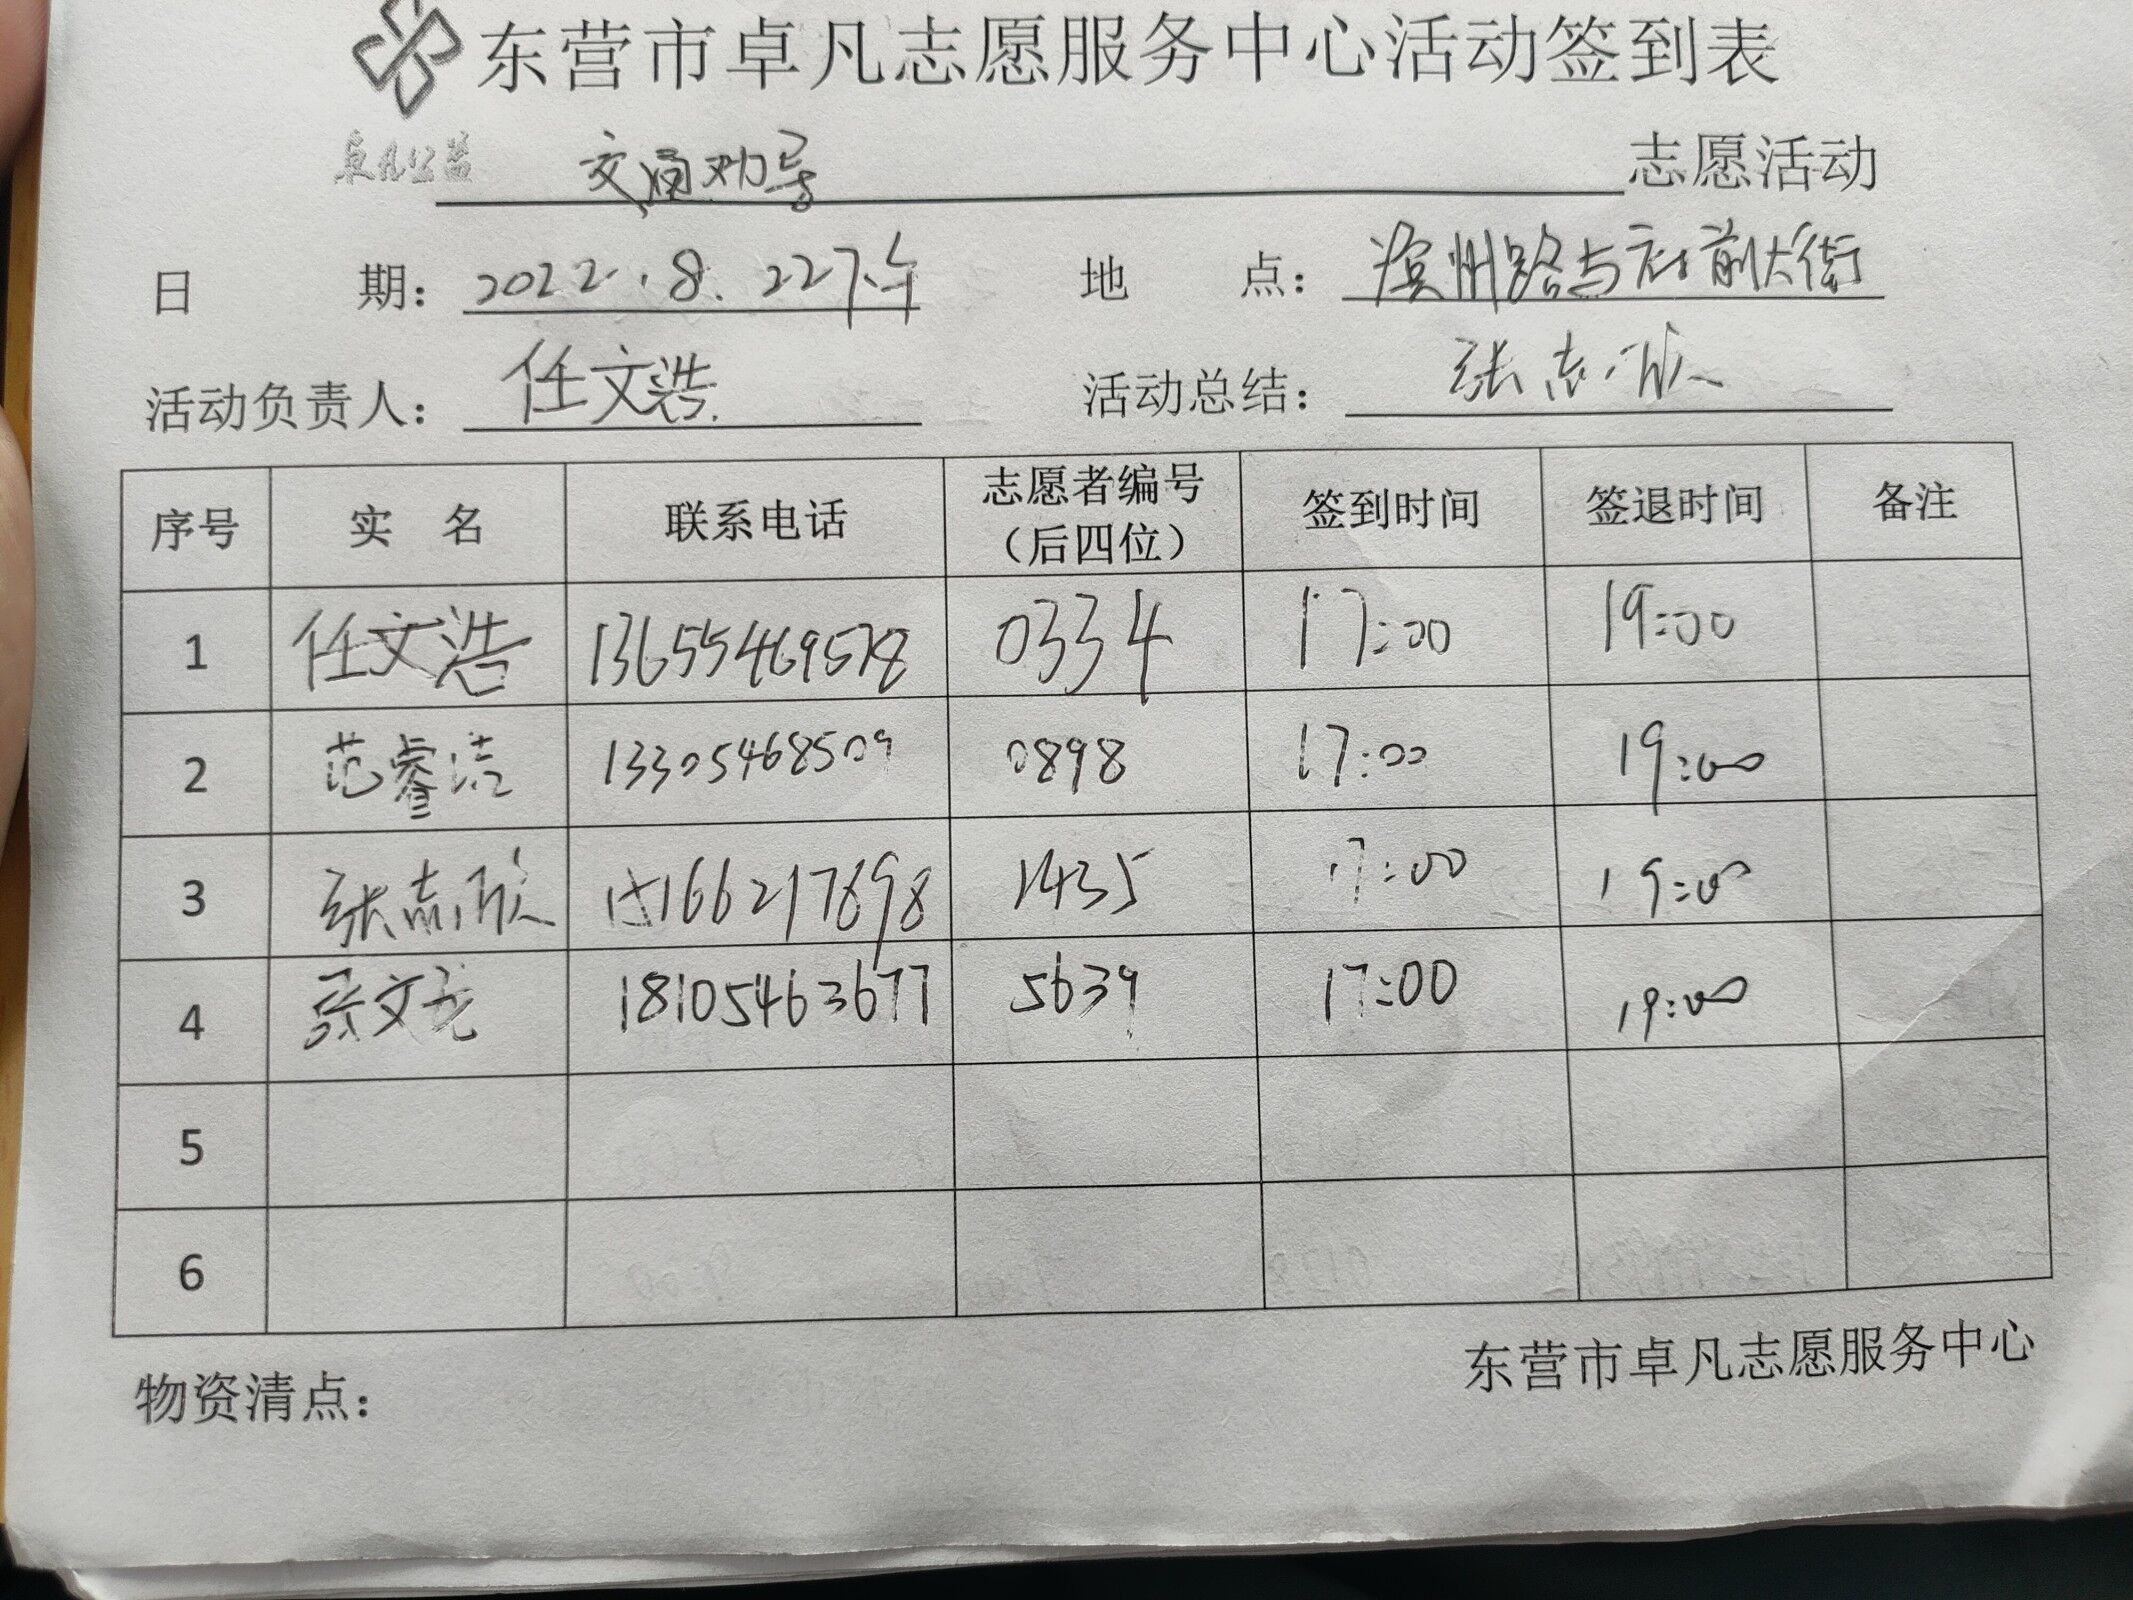 东营市卓凡志愿服务中心活动签到表
卓凡公益
交通劝导 志愿活动
日 期：2022.8.22下午 地 点：滨州路与府前大街
活动负责人：任文浩 活动总结：张志欣
序号 实 名 联系电话 志愿者编号（后四位） 签到时间 签退时间 备注
1 任文浩 13655469578 0334 17:00 19:00
2 范睿洁 13305468509 0898 17:00 19:00
3 张志欣 15166217898 1435 17:00 19:00
4 张文龙 18105463677 5639 17:00 19:00
5
6
物资清点： 东营市卓凡志愿服务中心